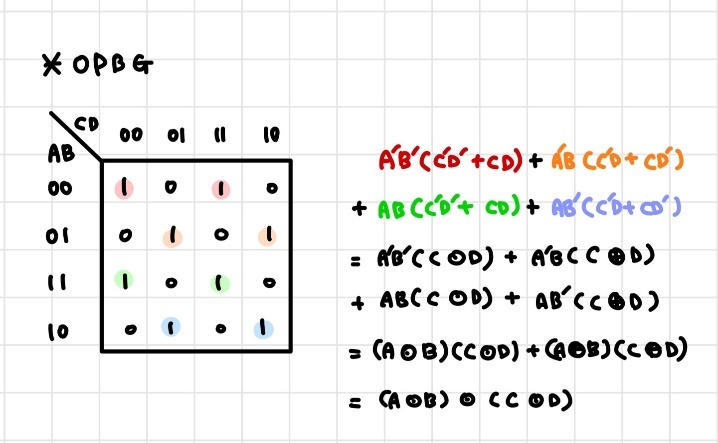 * OPBG
CD 00 01 11 10
AB
00 1 0 1 0
01 0 1 0 1
11 1 0 1 0
10 0 1 0 1
A'B'(C'D'+CD) + A'B(C'D+CD')
+ AB(C'D'+CD) + AB'(C'D+CD')
= A'B'(C⊙D) + A'B(C⊕D)
+ AB(C⊙D) + AB'(C⊕D)
= (A⊙B)(C⊙D) + (A⊕B)(C⊕D)
= (A⊙B) ⊙ (C⊙D)